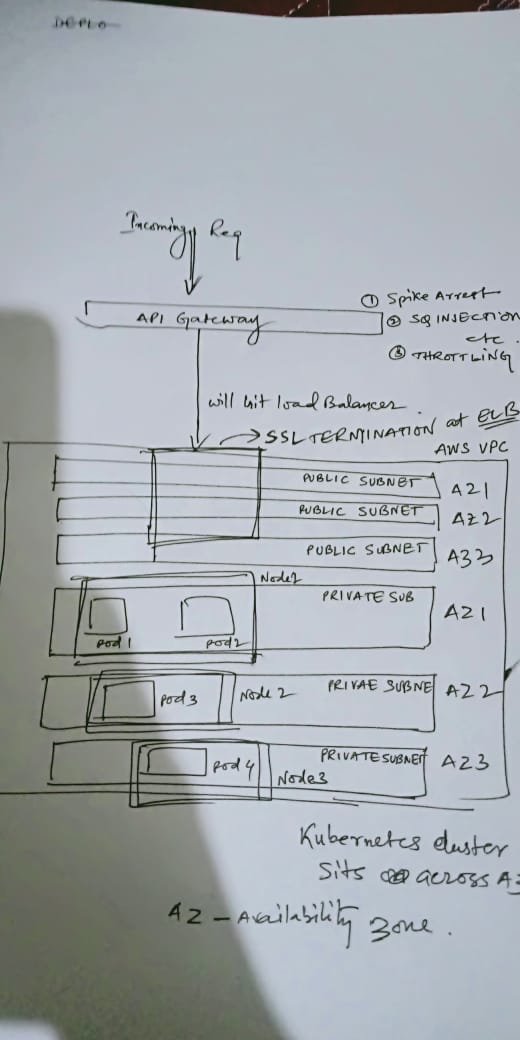 DEPLO
Incoming Req
API Gateway
① Spike Arrest
② SQ INJECTION
etc.
③ THROTTLING
will hit load Balancer.
SSL TERMINATION at ELB
AWS VPC
PUBLIC SUBNET AZ1
PUBLIC SUBNET AZ2
PUBLIC SUBNET AZ3
Node1
PRIVATE SUB AZ1
Pod 1 Pod 2
Pod 3 Node 2 PRIVAE SUBNE AZ2
Pod 4 Node3 PRIVATE SUBNET AZ3
Kubernetes cluster
Sits across AZ
AZ - Availability Zone.